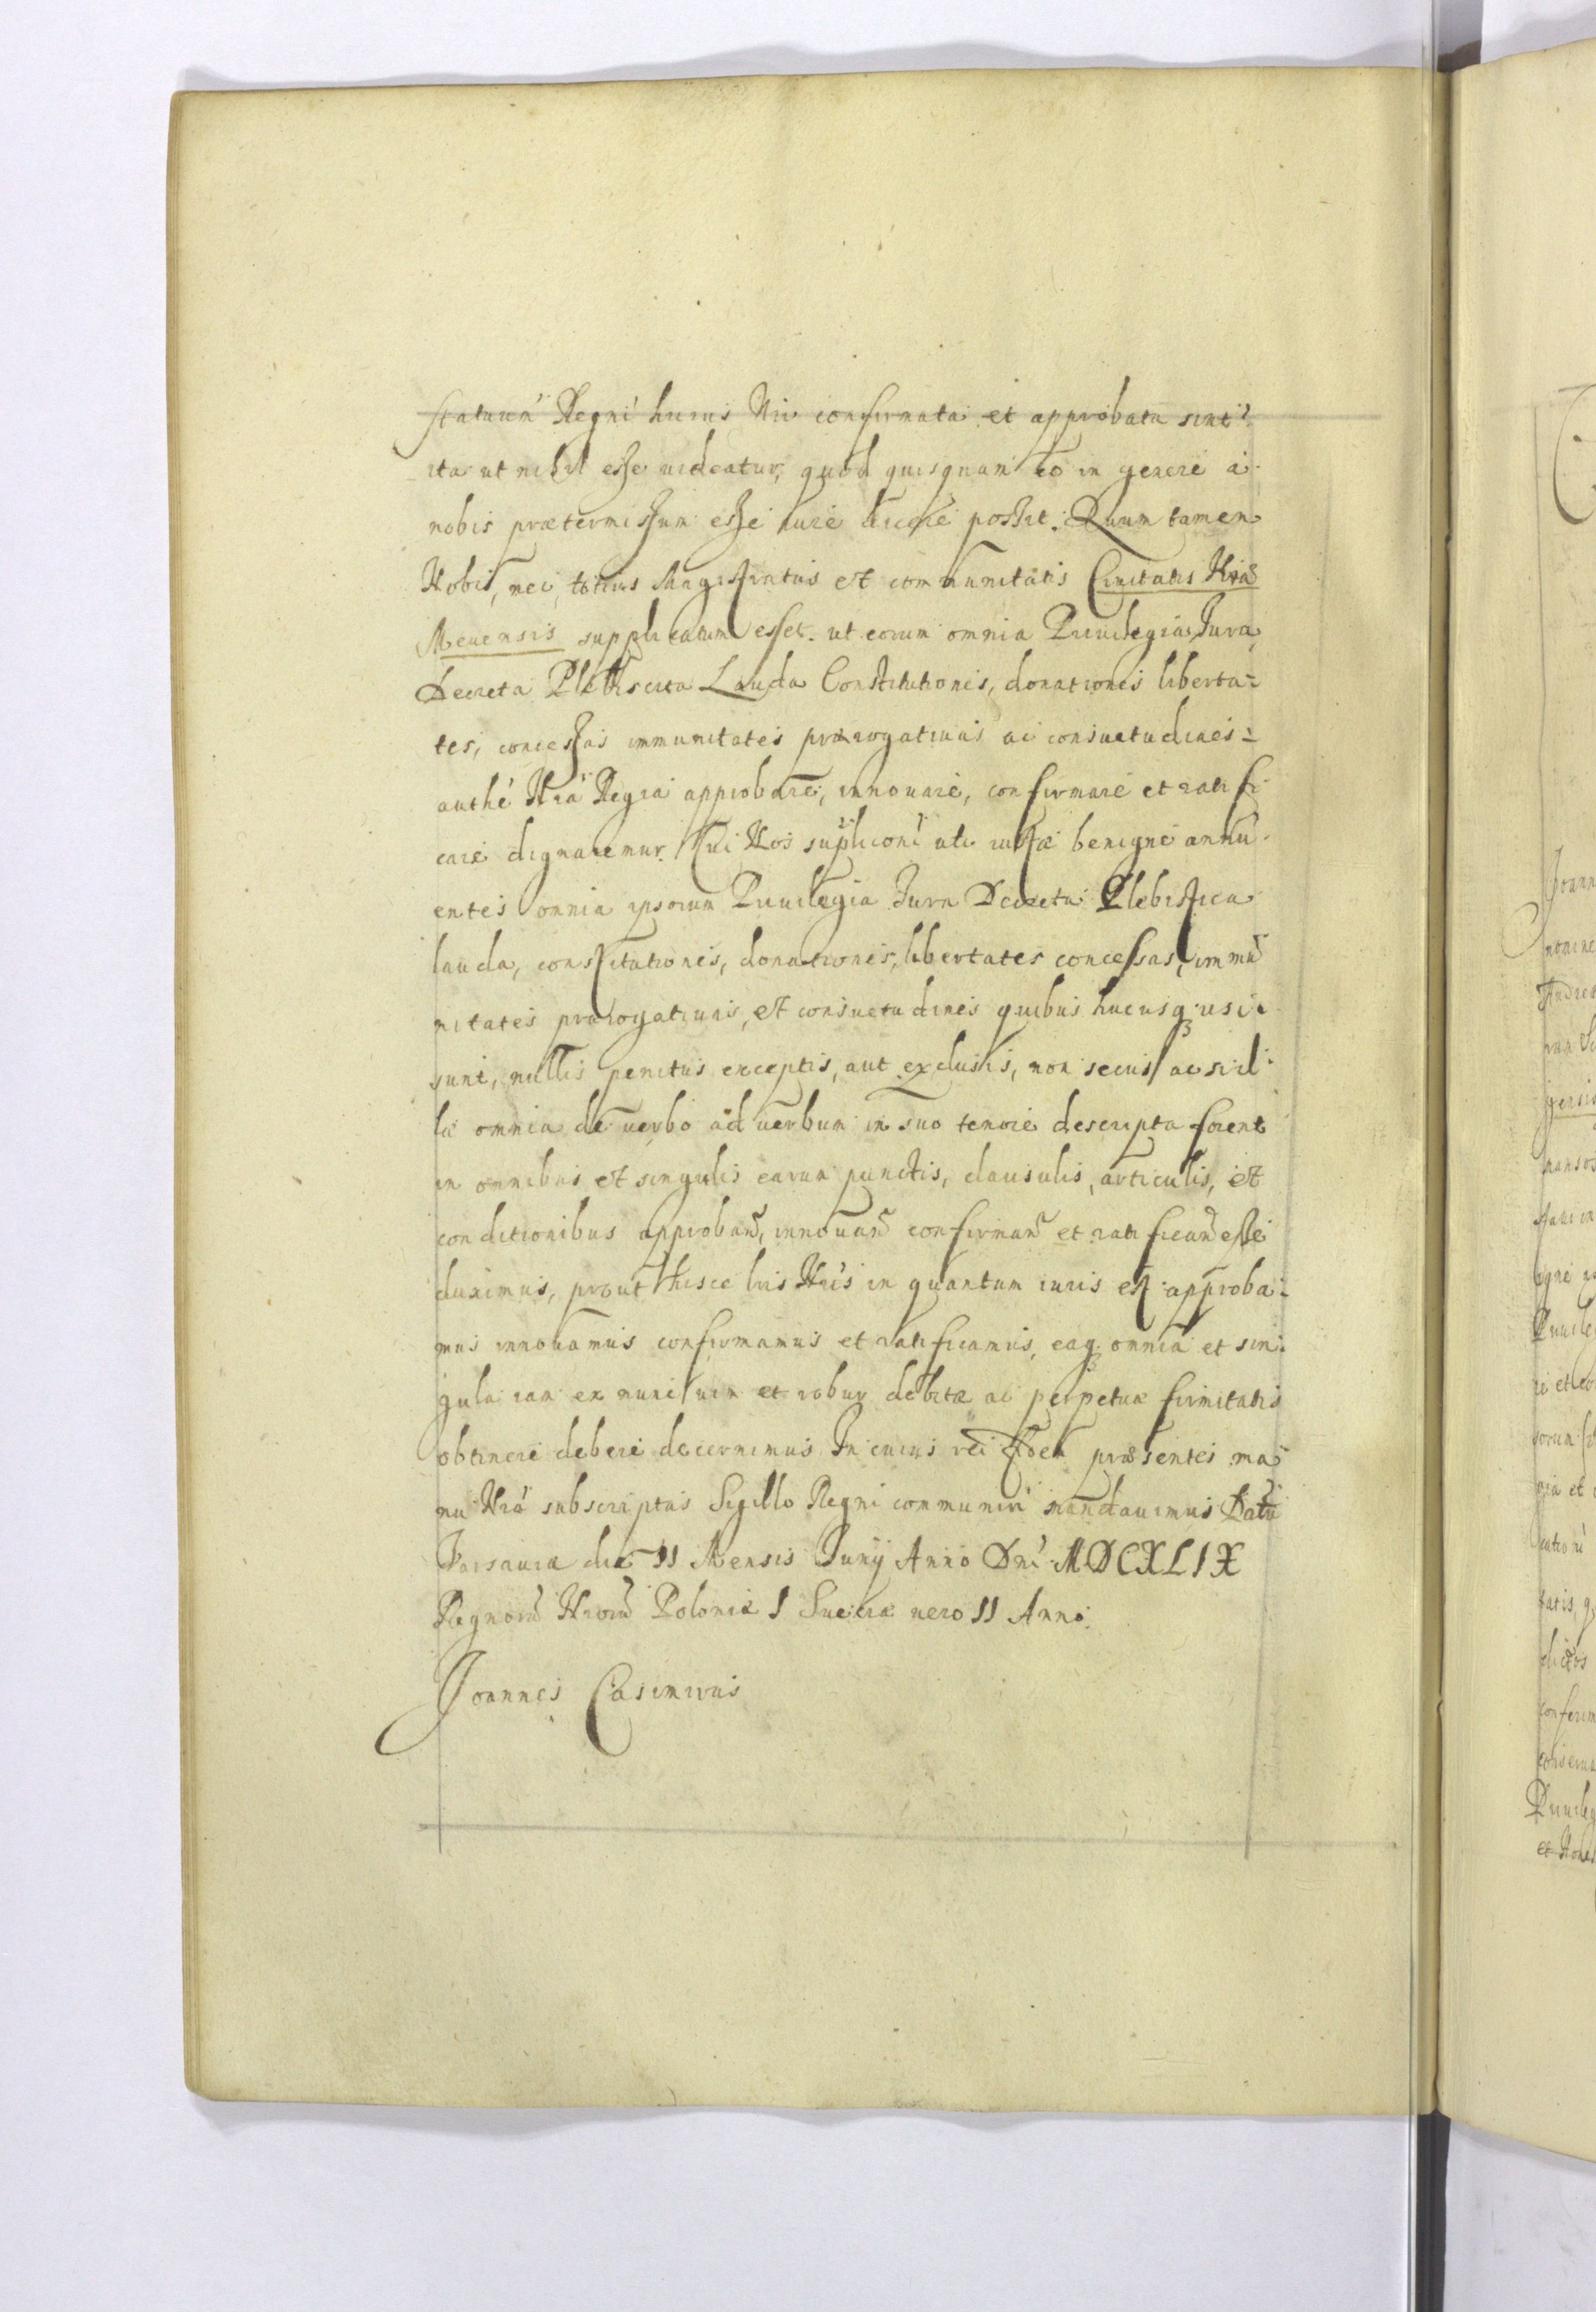 statuum Regni huius Nri confirmata et approbata sint
ita ut nihil esse uideatur, quod quisquam eo in genere a
nobis prætermissum esse iure dicere possit. Quum tamen
Nobis, nei, totius Magistratus et communitatis Ciuitatis Nræ
Meuensis supplicatum esset. ut eorum omnia Priuilegia, Jura,
Decreta Plebiscita Lauda Constitutiones, donationes liberta-
tes, concessas immunitates prærogatiuas ac consuetudines
authe Nra Regia approbare, innouare, confirmare et ratifi
care dignaremur. Cui Nos supliconi uti iustæ benigne annu
entes omnia ipsorum Priuilegia Jura Decreta Plebistica
lauda, constitutiones, donationes, libertates concessas, immu
nitates prærogatiuas, et consuetudines quibus hucusq usi
sunt, nullis penitus exceptis, aut exclusis, non secus ac si il
la omnia de uerbo ad uerbum in suo tenore descripta forent
in omnibus et singulis earum punctis, clausulis, articulis, et
conditionibus approban, innouan confirman et ratifican esse
duximus, prout hisce lris Nris in quantum iuris est approba-
mus innouamus confirmamus et ratificamus, eaq omnia et sin
gula iam ex nunc uim et robur debitæ ac perpetuæ firmitatis
obtinere debere decernimus In cuius rei fidem præsentes ma
nu Nra subscriptas Sigillo Regni communiri mandauimus Datu
Varsauiæ die 11 Mensis Junij Anno Dni MDCXLIX
Regnoru Nroru Poloniæ I Sueciæ uero II Anno.
Joannes Casimirus